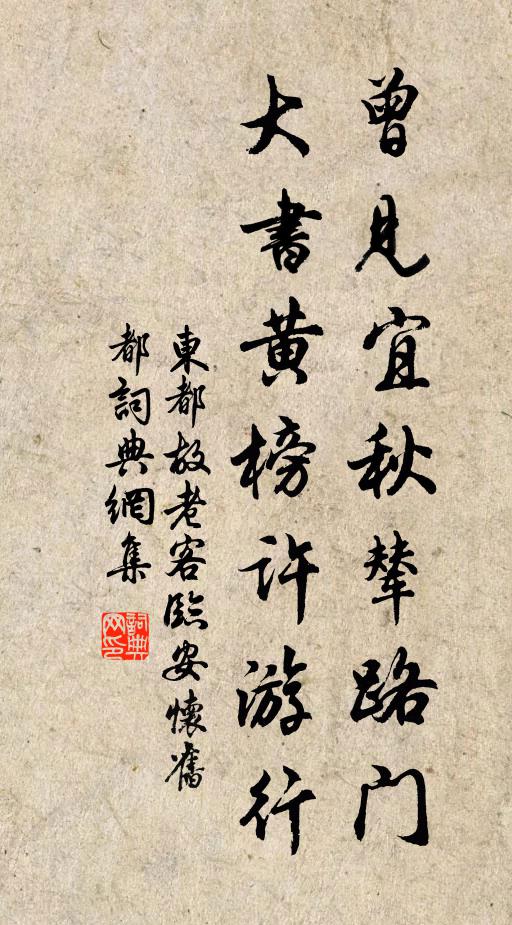 曾见宜秋辇路门
大書黄榜许游行
東都故老客臨安懷舊
都詞典網集
詞典网印